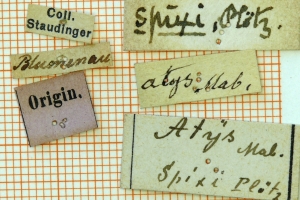 Coll.
Staudinger
Blumenau
Origin.
Spixi, Plötz.
atys, Mab.
Atys
Mab.
Spixi Plötz